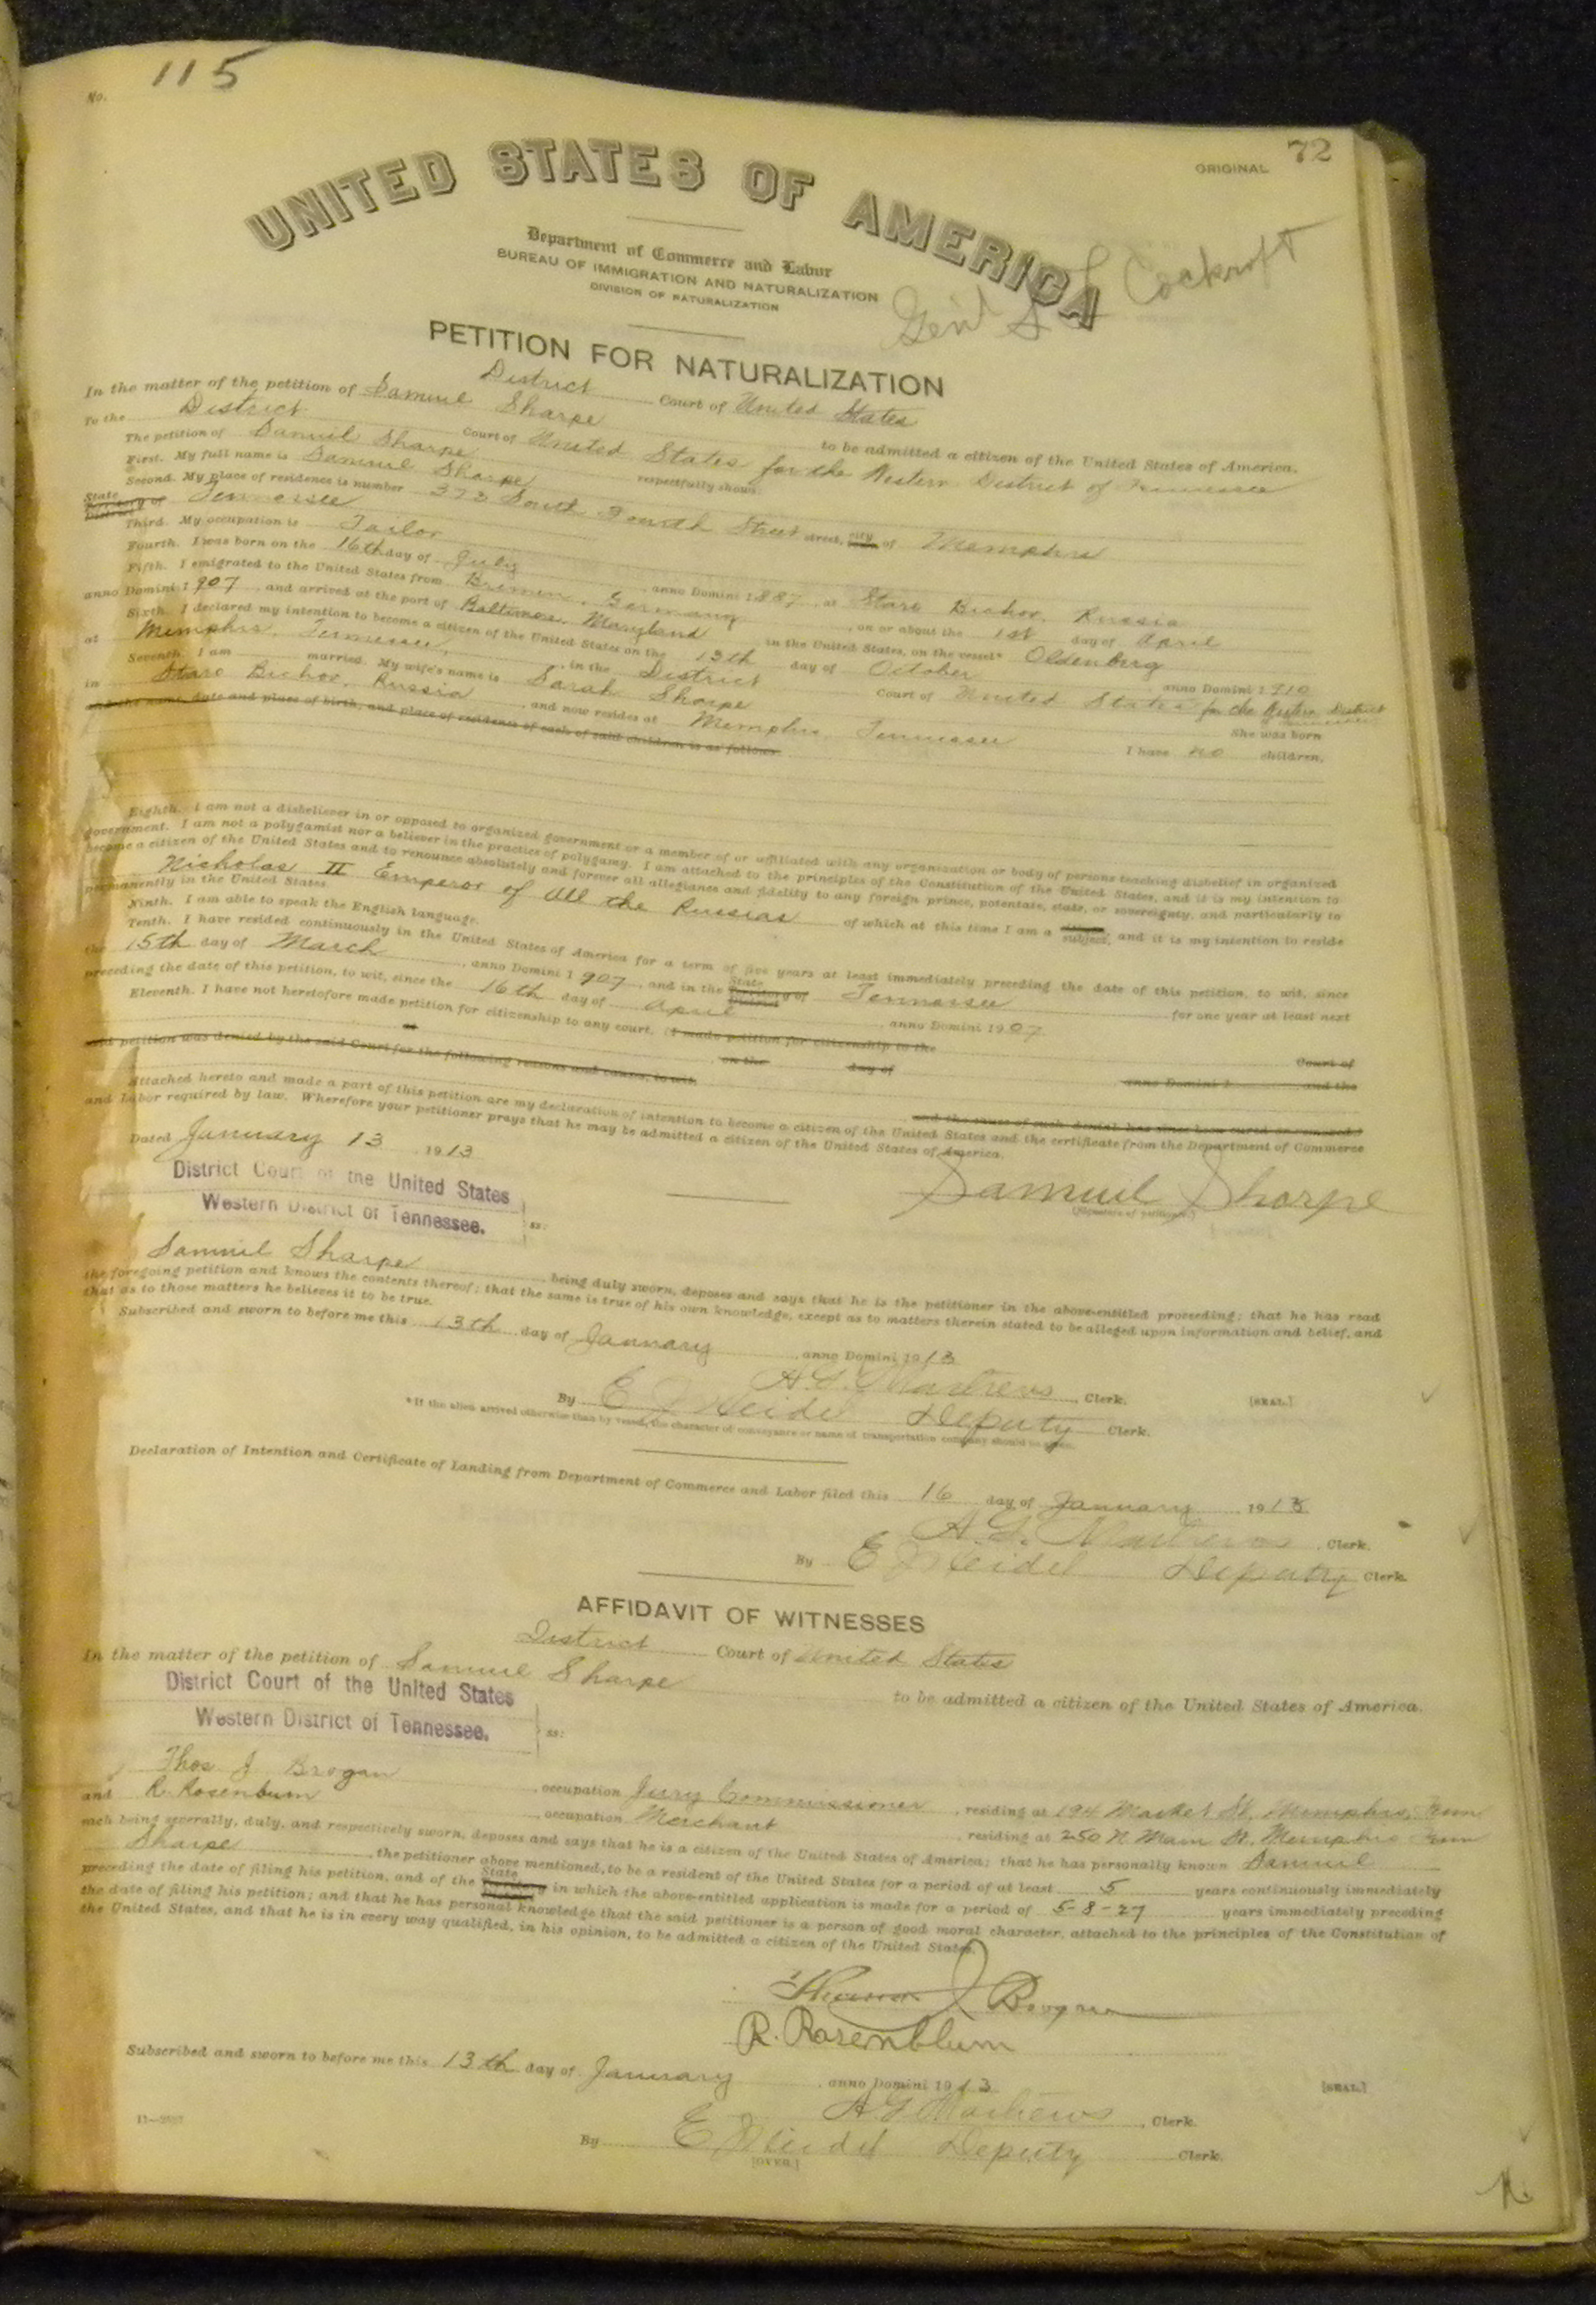 No. 115
ORIGINAL 72
UNITED STATES OF AMERICA
Department of Commerce and Labor
BUREAU OF IMMIGRATION AND NATURALIZATION
DIVISION OF NATURALIZATION
Cockroft
PETITION FOR NATURALIZATION
District Court of United States
In the matter of the petition of Samuel Sharpe to be admitted a citizen of the United States of America.
To the District Court of United States for the Western District of Tennessee
The petition of Samuel Sharpe respectfully shows:
First. My full name is Samuel Sharpe
Second. My place of residence is number 373 South Fourth Street street, city of Memphis
State Territory of District Tennessee
Third. My occupation is Tailor
Fourth. I was born on the 16th day of July, anno Domini 1887, at Staro Bichov, Russia
Fifth. I emigrated to the United States from Bremen, Germany, on or about the 1st day of April
anno Domini 1907, and arrived at the port of Baltimore, Maryland in the United States, on the vessel* Oldenberg
Sixth. I declared my intention to become a citizen of the United States on the 13th day of October anno Domini 1910
at Memphis, Tennessee, in the District Court of United States for the Western District
Seventh. I am married. My wife's name is Sarah Sharpe She was born
in Staro Bichov, Russia, and now resides at Memphis, Tennessee I have no children,
and the name, date and place of birth, and place of residence of each of said children is as follows:
Eighth. I am not a disbeliever in or opposed to organized government or a member of or affiliated with any organization or body of persons teaching disbelief in organized
government. I am not a polygamist nor a believer in the practice of polygamy. I am attached to the principles of the Constitution of the United States, and it is my intention to
become a citizen of the United States and to renounce absolutely and forever all allegiance and fidelity to any foreign prince, potentate, state, or sovereignty, and particularly to
Nicholas II Emperor of All the Russias of which at this time I am a citizen subject, and it is my intention to reside
permanently in the United States.
Ninth. I am able to speak the English language.
Tenth. I have resided continuously in the United States of America for a term of five years at least immediately preceding the date of this petition, to wit, since
the 15th day of March, anno Domini 1907, and in the State Territory of District Tennessee for one year at least next
preceding the date of this petition, to wit, since the 16th day of April, anno Domini 1907
Eleventh. I have not heretofore made petition for citizenship to any court. (I made petition for citizenship to the Court of
at on the day of anno Domini 1 and the
said petition was denied by the said Court for the following reasons and causes, to wit,
and the cause of such denial has since been cured or removed.)
Attached hereto and made a part of this petition are my declaration of intention to become a citizen of the United States and the certificate from the Department of Commerce
and Labor required by law. Wherefore your petitioner prays that he may be admitted a citizen of the United States of America.
Dated January 13 1913
Samuel Sharpe
(Signature of petitioner)
District Court of the United States
Western District of Tennessee. ss:
Samuel Sharpe being duly sworn, deposes and says that he is the petitioner in the above-entitled proceeding; that he has read
the foregoing petition and knows the contents thereof; that the same is true of his own knowledge, except as to matters therein stated to be alleged upon information and belief, and
that as to those matters he believes it to be true.
Subscribed and sworn to before me this 13th day of January, anno Domini 1913
A. G. Mathews, Clerk. [SEAL.]
By E J Heidel Deputy Clerk.
*If the alien arrived otherwise than by vessel, the character of conveyance or name of transportation company should be given.
Declaration of Intention and Certificate of Landing from Department of Commerce and Labor filed this 16 day of January 1913
A. G. Mathews, Clerk.
By E J Heidel Deputy Clerk.
AFFIDAVIT OF WITNESSES
District Court of United States
In the matter of the petition of Samuel Sharpe to be admitted a citizen of the United States of America.
District Court of the United States
Western District of Tennessee. ss:
Thos J Brogan, occupation Jury Commissioner, residing at 194 Market St. Memphis, Tenn
and R. Rosenbum, occupation Merchant, residing at 250 N. Main St. Memphis Tenn
each being severally, duly, and respectively sworn, deposes and says that he is a citizen of the United States of America; that he has personally known Samuel
Sharpe, the petitioner above mentioned, to be a resident of the United States for a period of at least 5 years continuously immediately
preceding the date of filing his petition, and of the State Territory District in which the above-entitled application is made for a period of 5-8-27 years immediately preceding
the date of filing his petition; and that he has personal knowledge that the said petitioner is a person of good moral character, attached to the principles of the Constitution of
the United States, and that he is in every way qualified, in his opinion, to be admitted a citizen of the United States.
Thomas J Brogan
R. Rosenblum
Subscribed and sworn to before me this 13th day of January, anno Domini 1913 [SEAL.]
A G Mathews, Clerk.
By E J Heidel Deputy Clerk.
[OVER.]